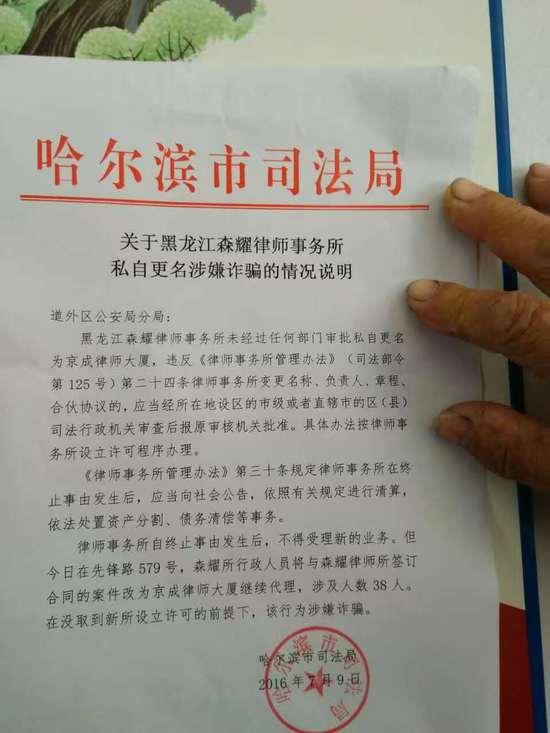 哈尔滨市司法局
关于黑龙江森耀律师事务所
私自更名涉嫌诈骗的情况说明
道外区公安局分局：
黑龙江森耀律师事务所未经过任何部门审批私自更名
为京成律师大厦，违反《律师事务所管理办法》（司法部令
第125号）第二十四条律师事务所变更名称、负责人、章程、
合伙协议的，应当经所在地设区的市级或者直辖市的区（县）
司法行政机关审查后报原审核机关批准。具体办法按律师事
务所设立许可程序办理。
《律师事务所管理办法》第三十条规定律师事务所在终
止事由发生后，应当向社会公告，依照有关规定进行清算，
依法处置资产分割、债务清偿等事务。
律师事务所自终止事由发生后，不得受理新的业务。但
今日在先锋路579号，森耀所行政人员将与森耀律师所签订
合同的案件改为京成律师大厦继续代理，涉及人数38人。
在没取到新所设立许可的前提下，该行为涉嫌诈骗。
哈尔滨市司法局
2016年7月9日
哈尔滨市司法局